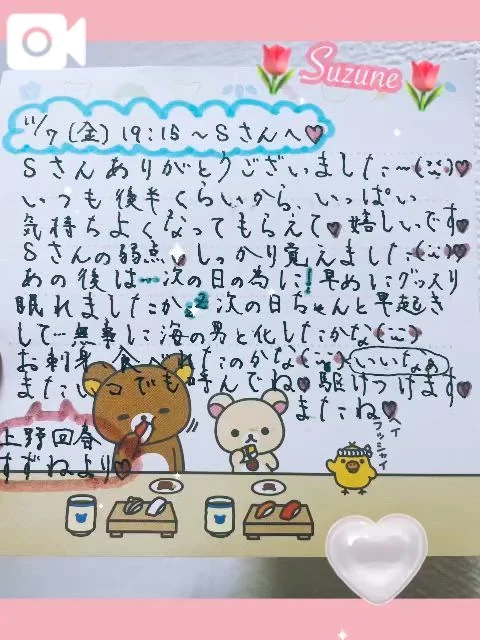 Suzune
11/7(金)19:15〜Sさんへ♡
Sさんありがとうございました〜
いつも後半くらいから、いっぱい
気持ちよくなってもらえて♥嬉しいです♥
Sさんの弱点♥しっかり覚えました
あの後は…次の日の為に!早めにグッスリ
眠れましたか 次の日ちゃんと早起き
して…無事に海の男と化したかな
お刺身 食べれたのかな いいなぁ
またいつでも呼んでね♥駆けつけます♥
またね♥
ヘイ
ラッシャイ
上野回春
すずねより♡